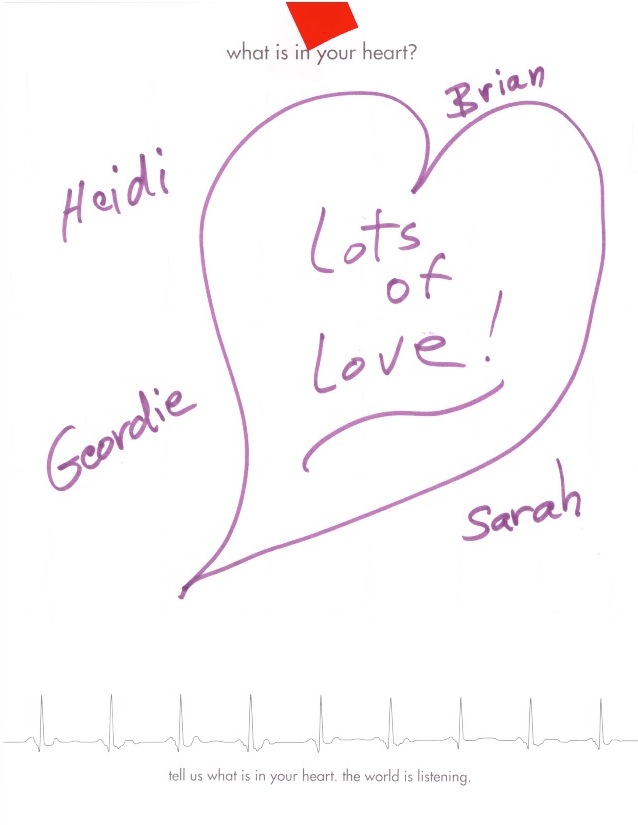 what is in your heart?
Brian
Heidi
Lots
of
Love!
Geordie
Sarah
tell us what is in your heart. the world is listening.